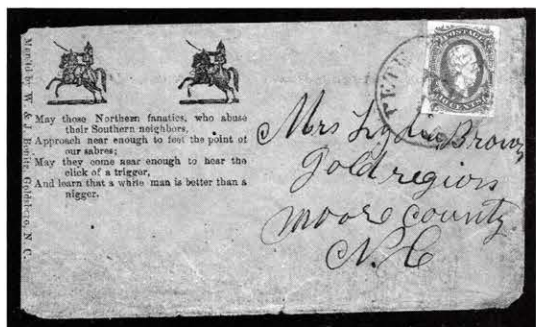 by W. & J. Bonitz, Goldsboro, N. C.
May those Northern fanatics, who abuse
their Southern neighbors,
Approach near enough to feel the point of
our sabres;
May they come near enough to hear the
click of a trigger,
And learn that a white man is better than a
nigger.
PETE
POSTAGE
CENTS
Mrs Lydia Brown
Gold region
Moore County
N.C